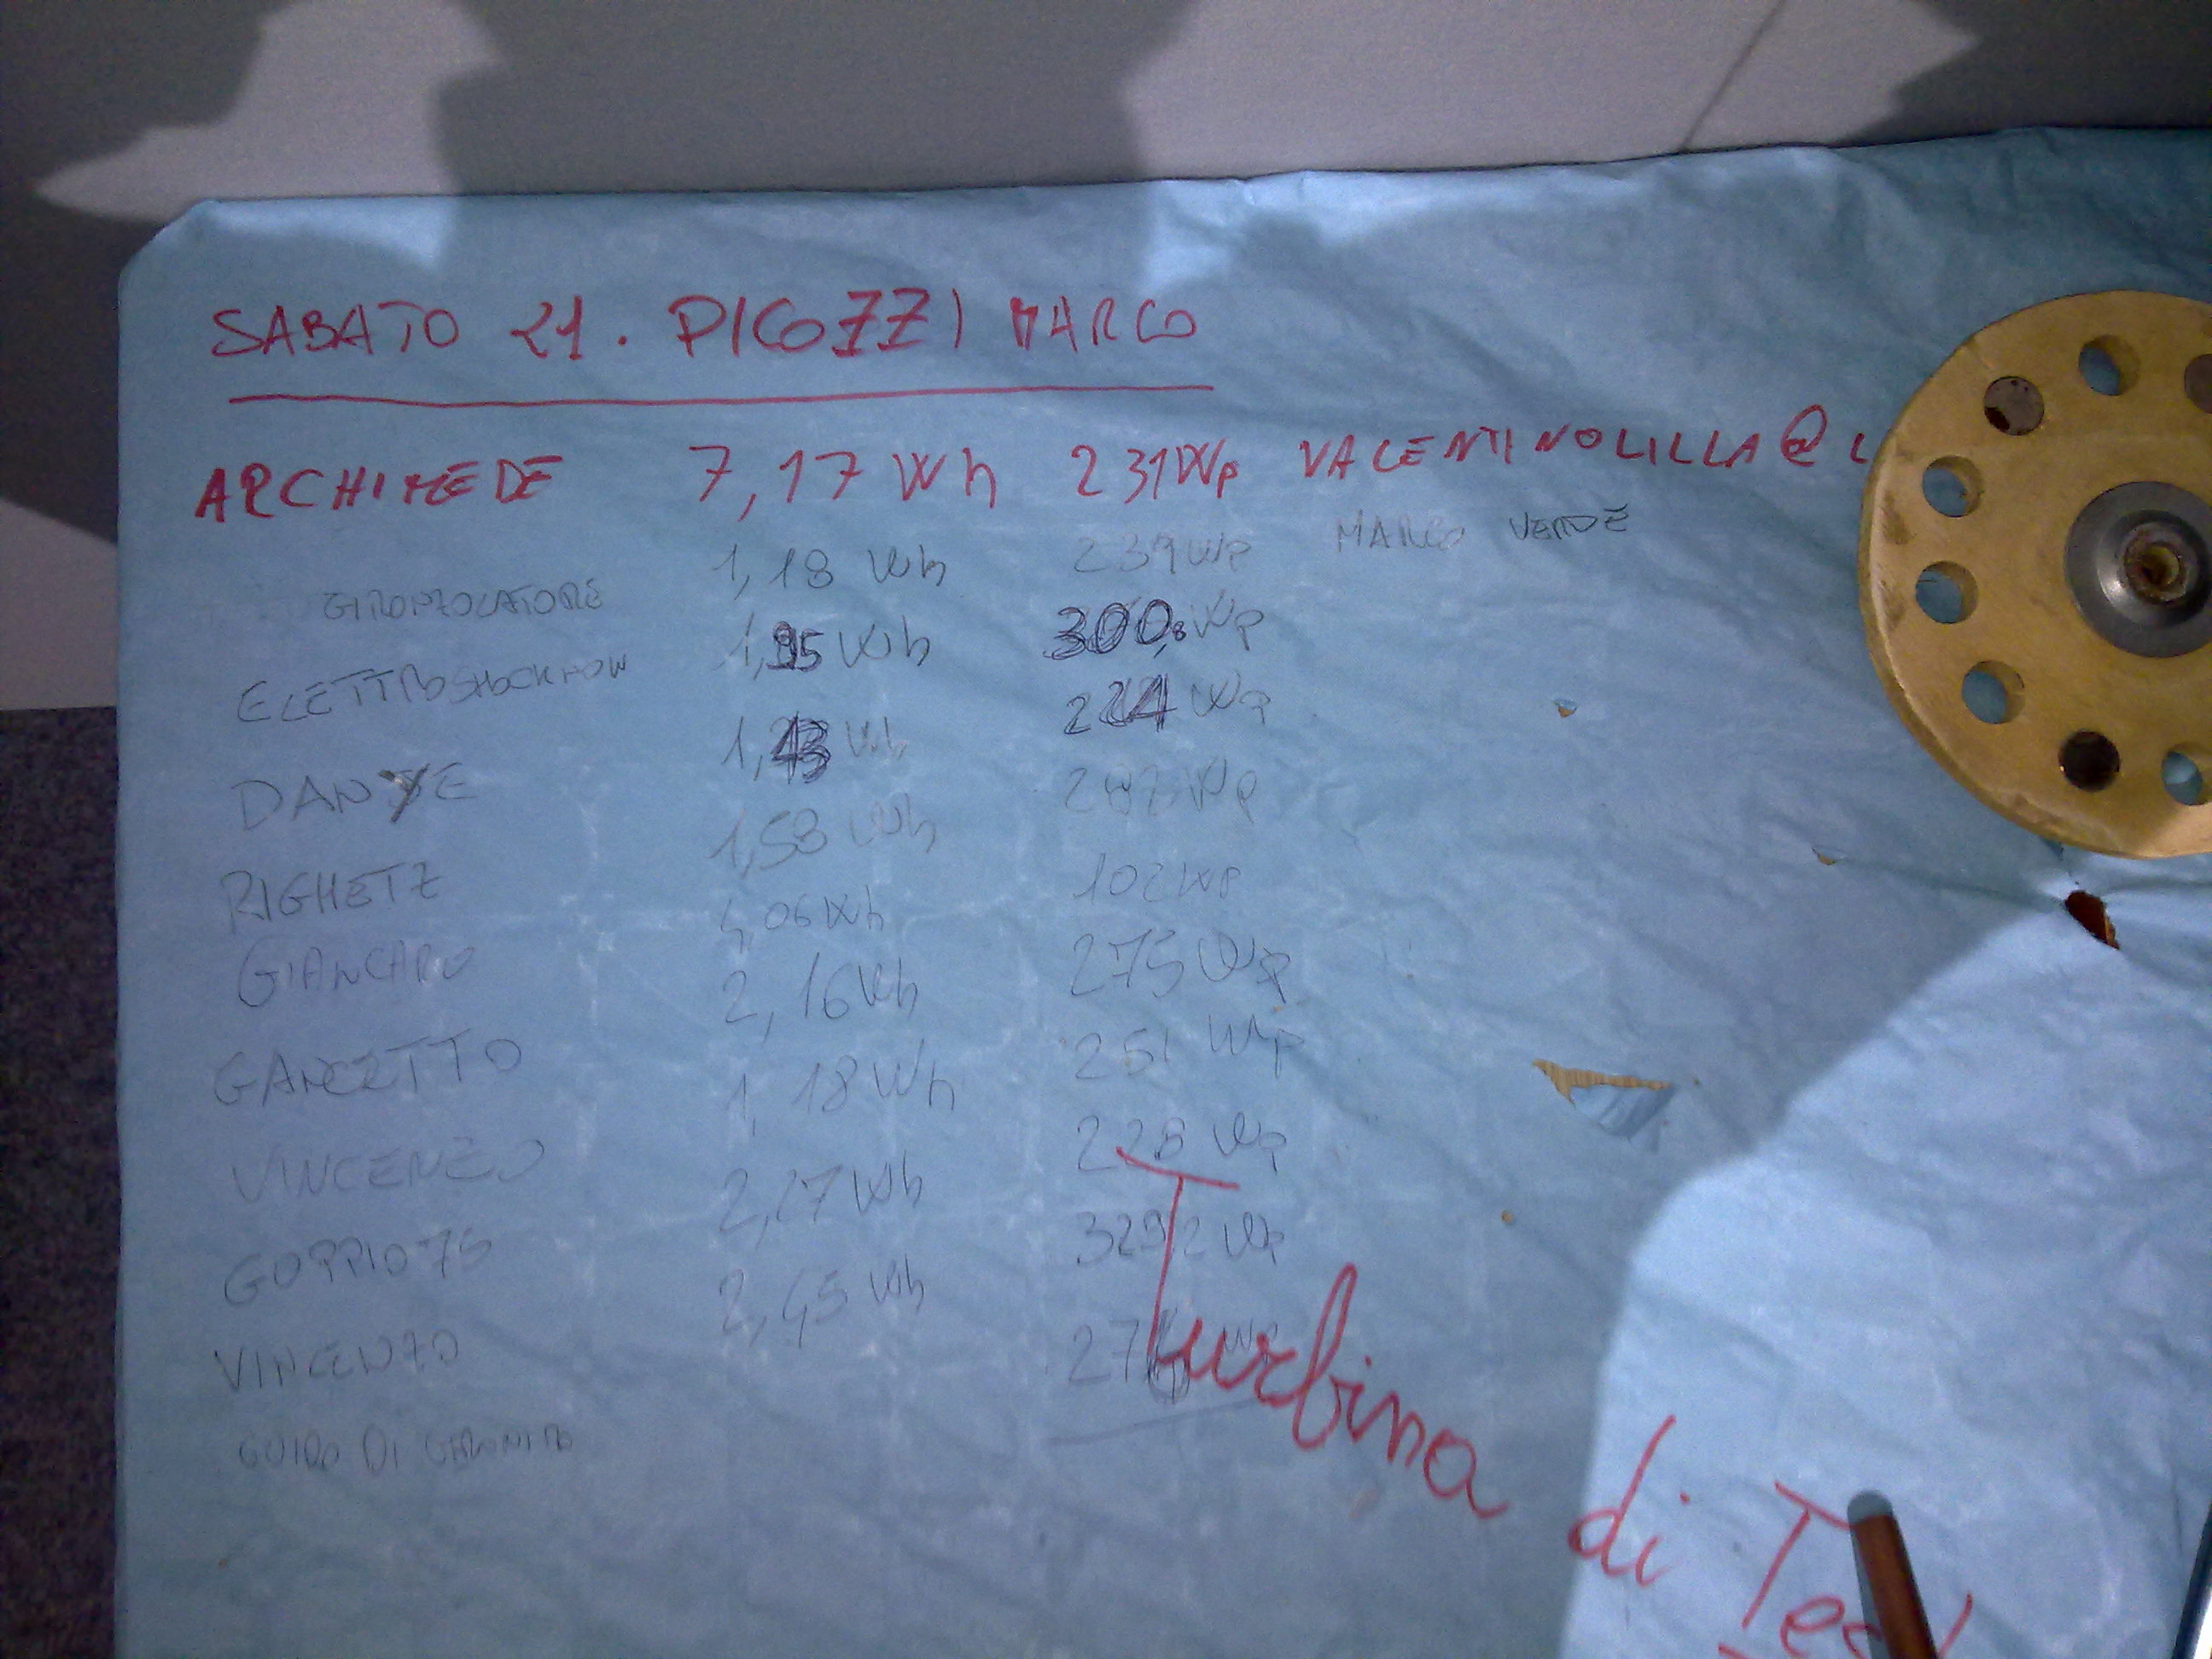 SABATO 21. PICOZZI MARCO
ARCHIMEDE 7,17 Wh 231Wp VALENTINOLILLA@L
GIRONZOLATORE 1,18 Wh 239Wp MARCO VERDE
ELETTROSHOCKNOW 1,95 Wh 300,8 Wp
DANTE 1,43 Wh 224 Wp
RIGHETZ 1,58 Wh 282 Wp
GIANCARO 1,06 Wh 102 Wp
GANZETTO 2,16 Wh 275 Wp
VINCENZO 1,18 Wh 251 Wp
GOPPIO75 2,17 Wh 228 Wp
VINCENZO 2,45 Wh 329,2 Wp
GUIDO DI 276 Wp
Turbina di